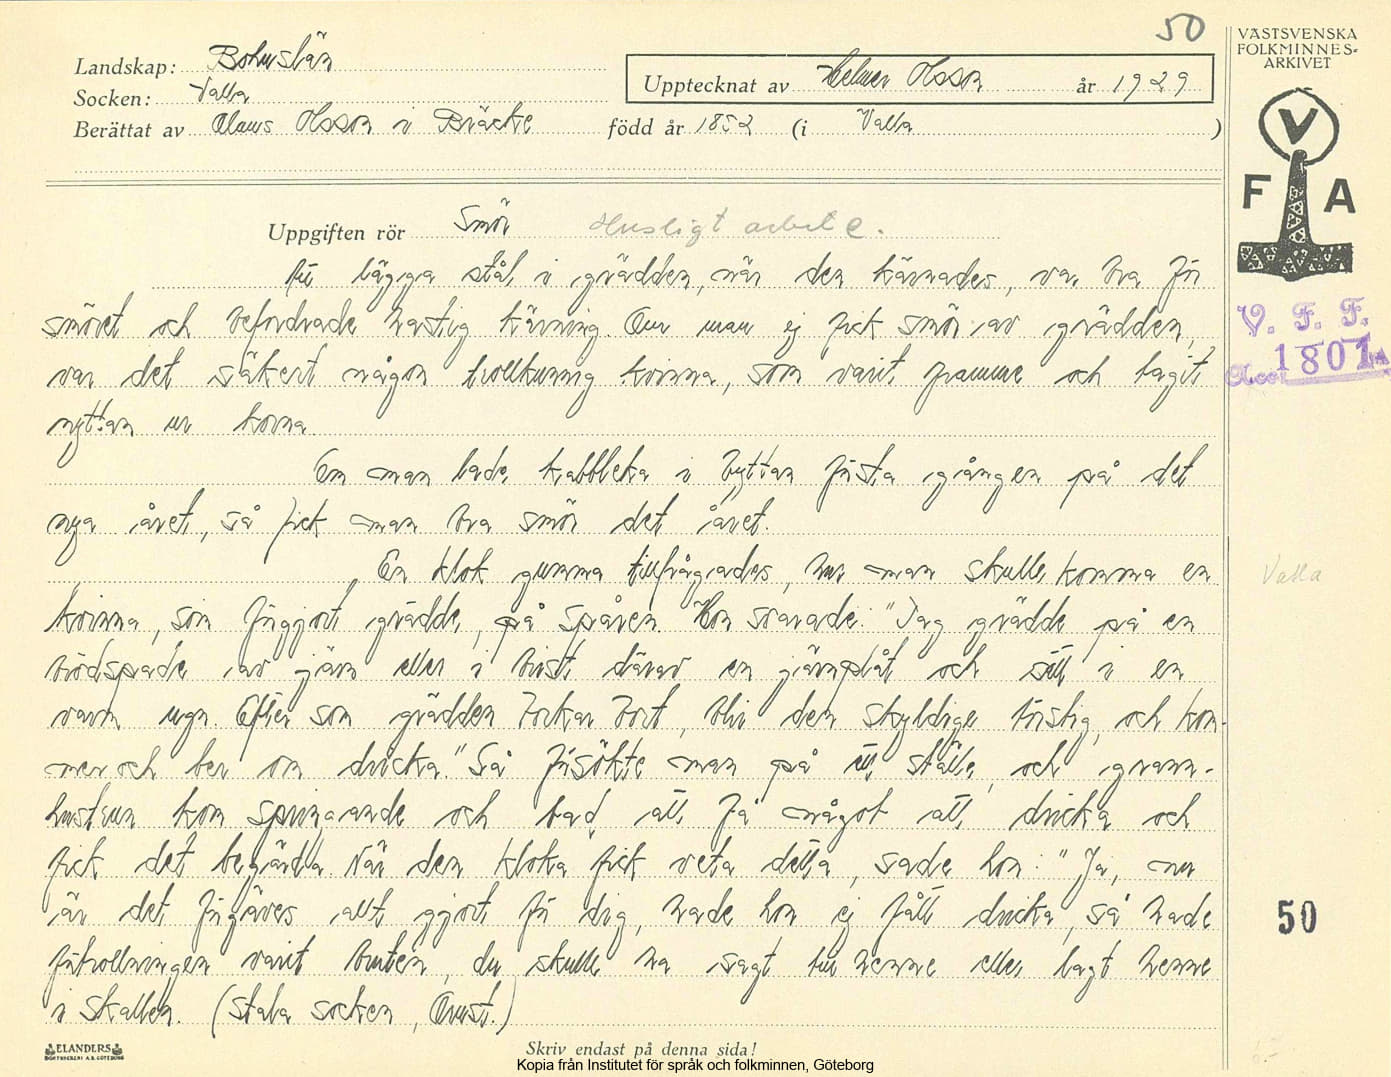 50
VÄSTSVENSKA
FOLKMINNES-
ARKIVET
Landskap: Bohuslän
Upptecknat av Helmer Olsson år 1929
Socken: Valla
Berättat av Olaus Olsson i Bräcke född år 1852 (i Valla )
V
F A
Uppgiften rör Smör Husligt arbete.
V. F. F.
Acc. 1801
Att lägga stål i grädden, när den kärnades, var bra för
smöret och befordrade hastig kärning. Om man ej fick smör av grädden,
var det säkert någon trollkunnig kvinna, som varit framme och tagit
nyttan ur korna.
Om man lade kabbleka i byttan första gången på det
nya året, så fick man bra smör det året.
En klok gumma tillfrågades, hur man skulle komma en
kvinna, som förgjort grädde, på spåren. Hon svarade: "Tag grädde på en
brödspade av järn eller i brist därav en järnplåt och sätt i en
varm ugn. Efter som grädden torkar bort, blir den skyldige törstig, och kom-
mer och ber om dricka." Så försökte man på ett ställe, och grann-
hustrun kom springande och bad att få något att dricka och
fick det begärda. När den kloka fick veta detta, sade hon: "Ja, nu
är det förgäves allt gjort för dig, hade hon ej fått dricka, så hade
förtrollningen varit bruten, du skulle ha sagt till henne eller lagt henne
i skallen. (Stala socken, Orust.)
Valla
50
ELANDERS
BOKTRYCKERI A.B. GÖTEBORG
Skriv endast på denna sida!
Kopia från Institutet för språk och folkminnen, Göteborg